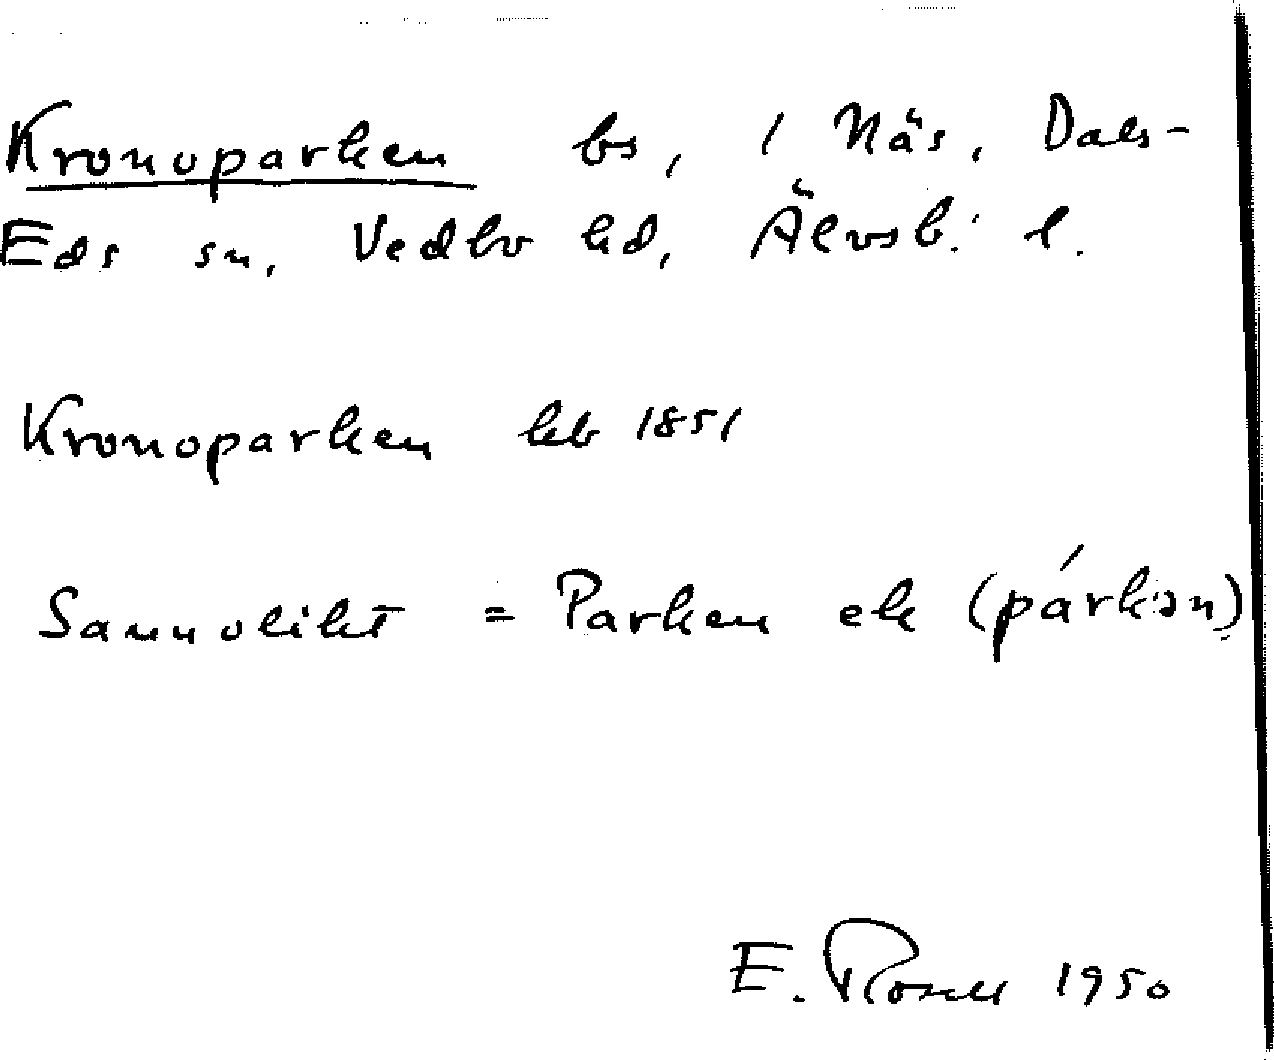 Kronoparken bs, 1 Näs, Dals-
Eds sn, Vedbo hd, Älvsb. l.
Kronoparken hb 1851
Sannolikt = Parken ek (párkən)
E. Rosell 1950